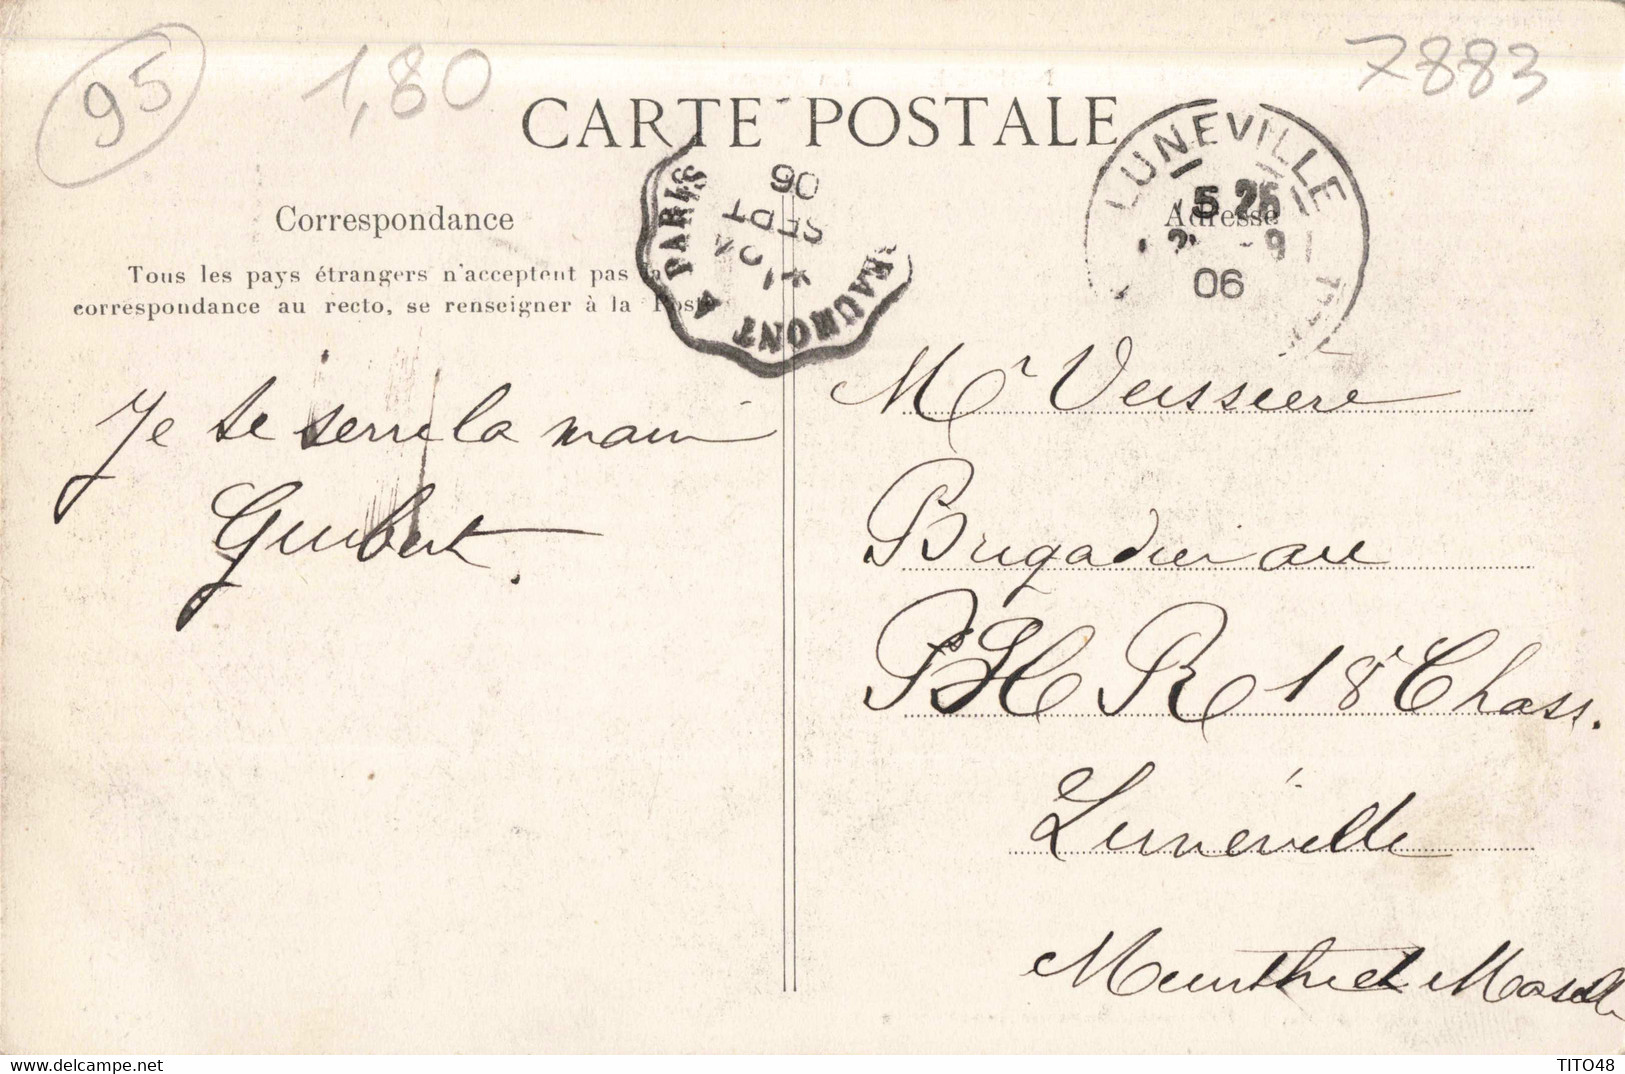 95
1,80
7883
CARTE POSTALE
Correspondance
Tous les pays étrangers n'acceptent pas la
correspondance au recto, se renseigner à la Poste
BEAUMONT A PARIS
SEPT
06
LUNEVILLE
5 25
9
06
Adresse
Je te serre la main
Guibert.
Mr Veissière
Brigadier au
P H R 18e Chass.
Lunéville
Meurthe et Moselle
TITO48